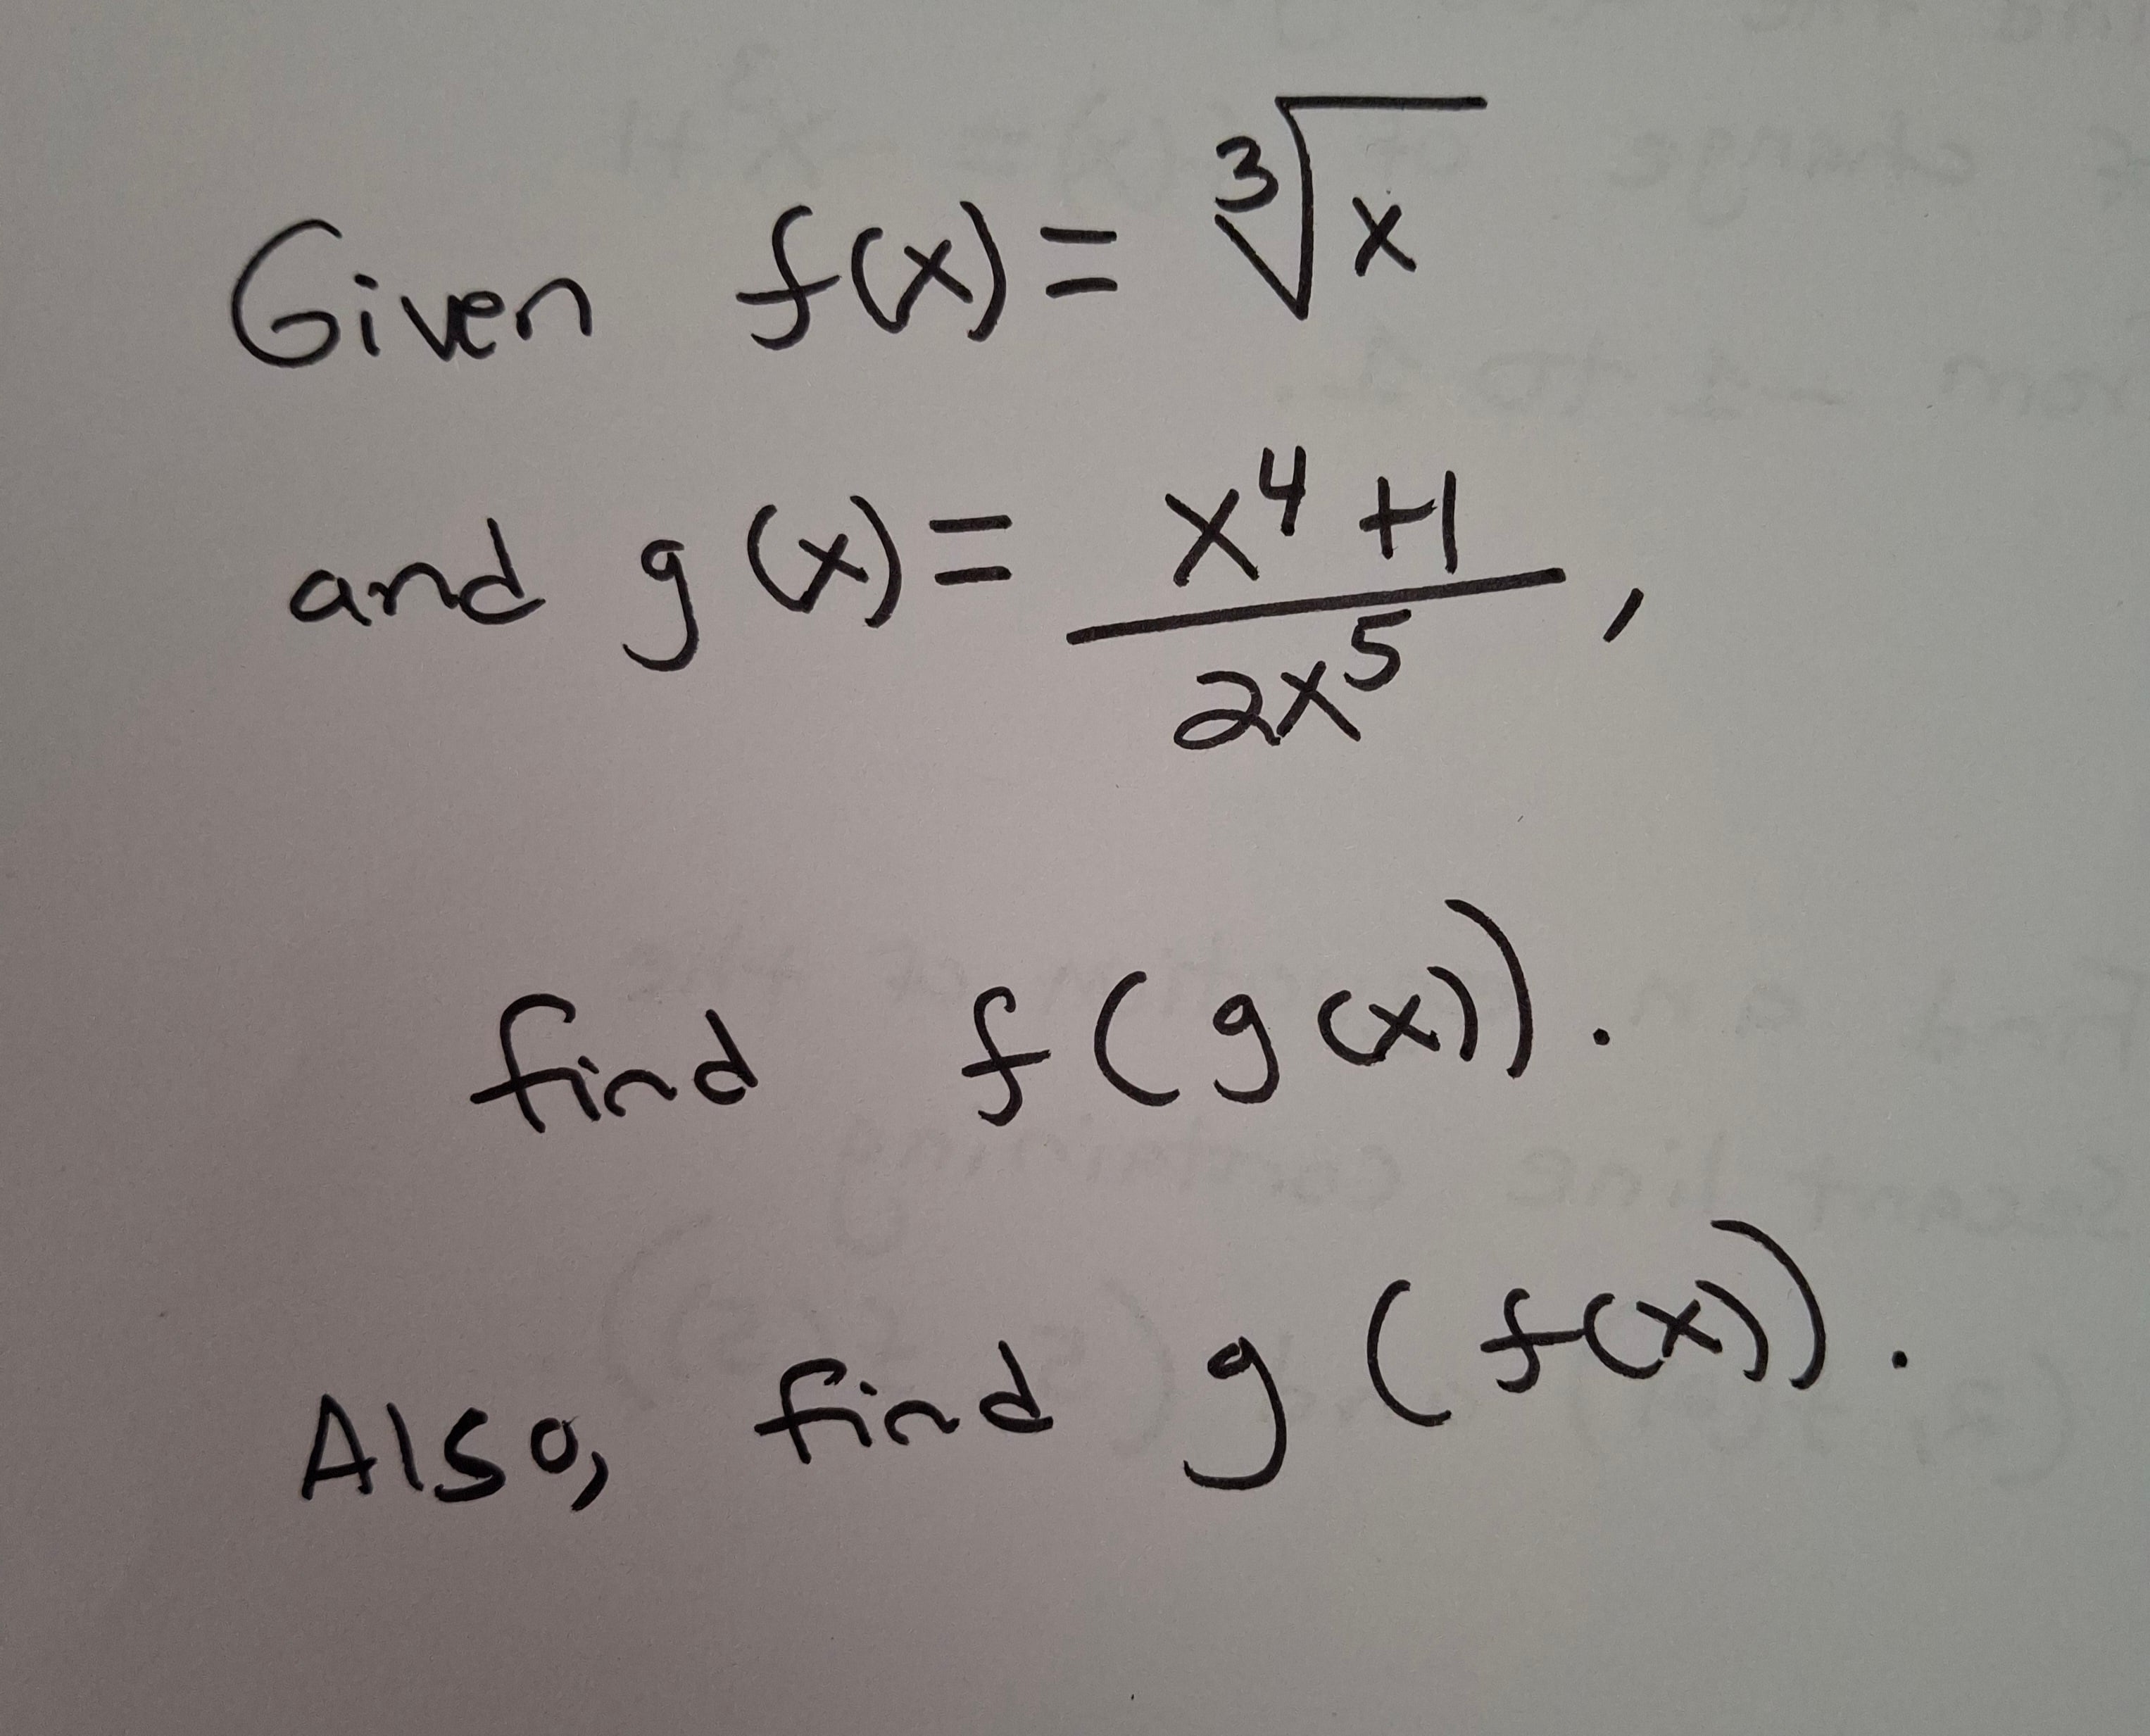 Given f(x) = ∛x
and g(x) = (x⁴ + 1)/(2x⁵),
find f(g(x)).
Also, find g(f(x)).